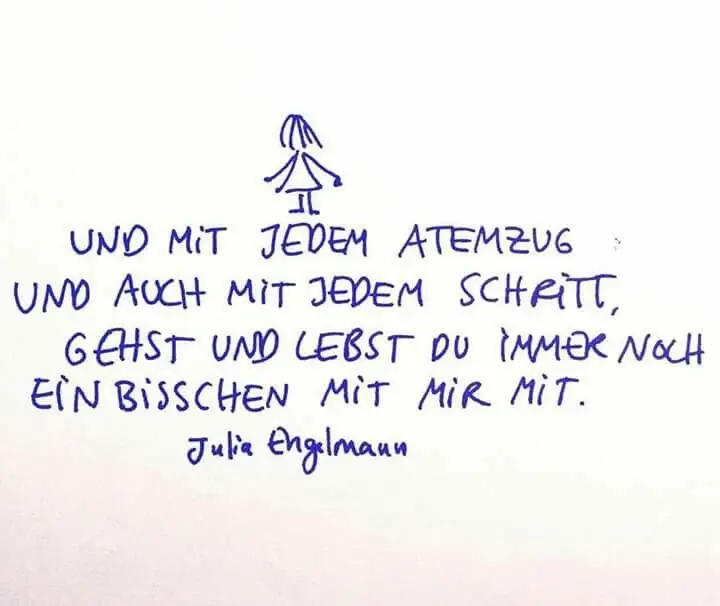 UND MIT JEDEM ATEMZUG
UND AUCH MIT JEDEM SCHRITT,
GEHST UND LEBST DU IMMER NOCH
EIN BISSCHEN MIT MIR MIT.
Julia Engelmann